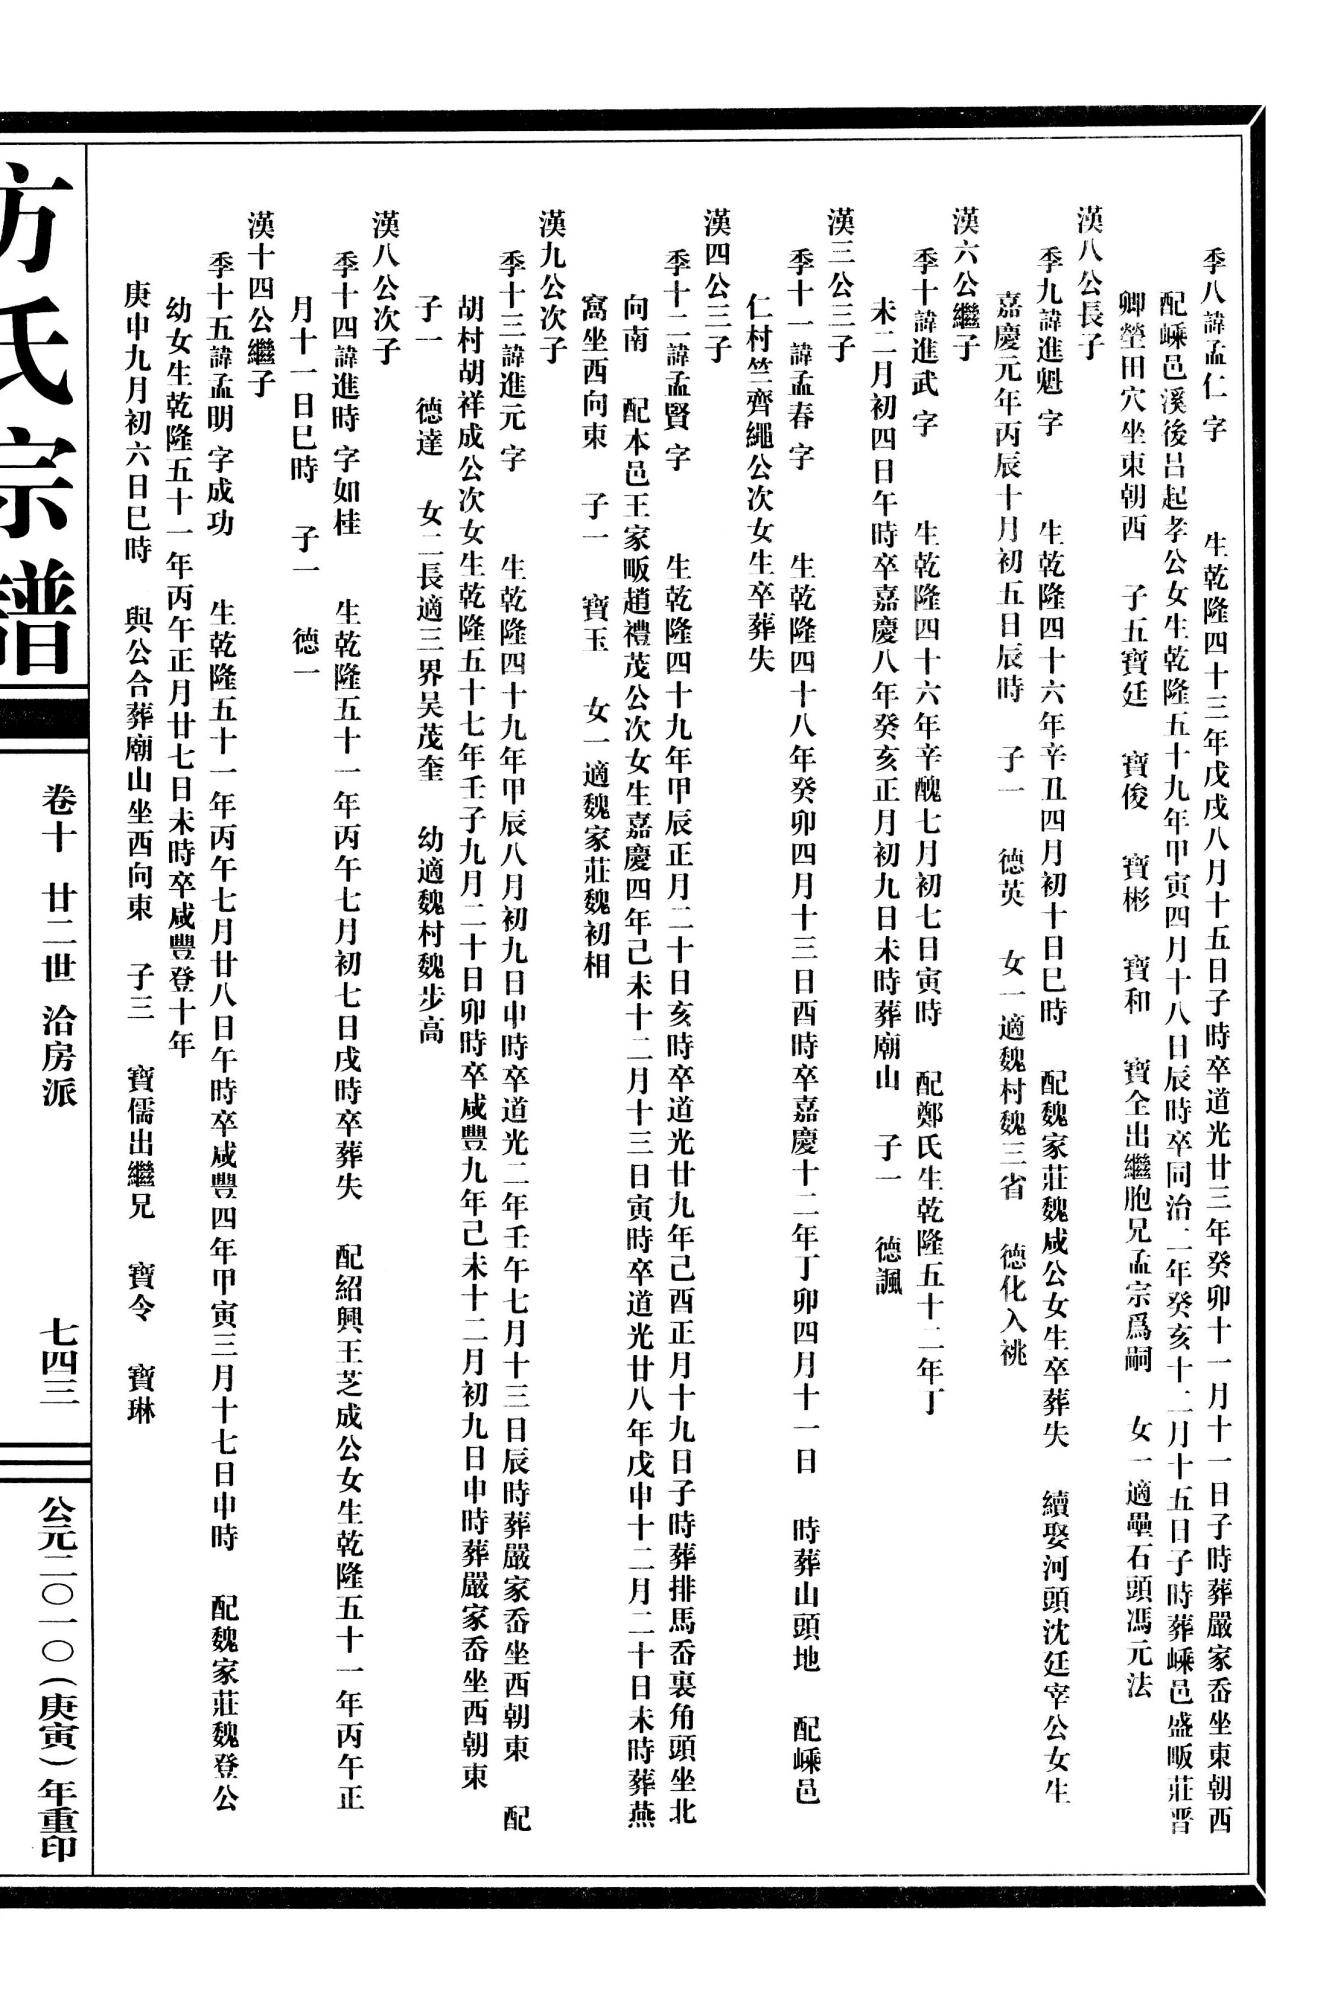 季八諱孟仁 字 生乾隆四十三年戊戌八月十五日子時卒道光廿三年癸卯十一月十一日子時葬嚴家岙坐東朝西
配嵊邑溪後吕起孝公女生乾隆五十九年甲寅四月十八日辰時卒同治二年癸亥十二月十五日子時葬嵊邑盛畈莊晋
卿塋田穴坐東朝西 子五寶廷 寶俊 寶彬 寶和 寶全出繼胞兄孟宗爲嗣 女一適壘石頭馮元法
漢八公長子
季九諱進魁 字 生乾隆四十六年辛丑四月初十日巳時 配魏家莊魏咸公女生卒葬失 續娶河頭沈廷宰公女生
嘉慶元年丙辰十月初五日辰時 子一 德英 女一適魏村魏三省 德化入祧
漢六公繼子
季十諱進武 字 生乾隆四十六年辛醜七月初七日寅時 配鄭氏生乾隆五十二年丁
未二月初四日午時卒嘉慶八年癸亥正月初九日未時葬廟山 子一 德諷
漢三公三子
季十一諱孟春 字 生乾隆四十八年癸卯四月十三日酉時卒嘉慶十二年丁卯四月十一日 時葬山頭地 配嵊邑
仁村竺齊繩公次女生卒葬失
漢四公三子
季十二諱孟賢 字 生乾隆四十九年甲辰正月二十日亥時卒道光廿九年己酉正月十九日子時葬排馬岙裏角頭坐北
向南 配本邑王家畈趙禮茂公次女生嘉慶四年己未十二月十三日寅時卒道光廿八年戊申十二月二十日未時葬燕
窩坐西向東 子一 寶玉 女一適魏家莊魏初相
漢九公次子
季十三諱進元 字 生乾隆四十九年甲辰八月初九日申時卒道光二年壬午七月十三日辰時葬嚴家岙坐西朝東 配
胡村胡祥成公次女生乾隆五十七年壬子九月二十日卯時卒咸豐九年己未十二月初九日申時葬嚴家岙坐西朝東
子一 德達 女二長適三界吴茂奎 幼適魏村魏步高
漢八公次子
季十四諱進時 字如桂 生乾隆五十一年丙午七月初七日戌時卒葬失 配紹興王芝成公女生乾隆五十一年丙午正
月十一日巳時 子一 德一
漢十四公繼子
季十五諱孟明 字成功 生乾隆五十一年丙午七月廿八日午時卒咸豐四年甲寅三月十七日申時 配魏家莊魏登公
幼女生乾隆五十一年丙午正月廿七日未時卒咸豐登十年
庚申九月初六日巳時 與公合葬廟山坐西向東 子三 寶儒出繼兄 寶令 寶琳
方氏宗譜
卷十 廿二世 洽房派
七四三
公元二〇一〇（庚寅）年重印